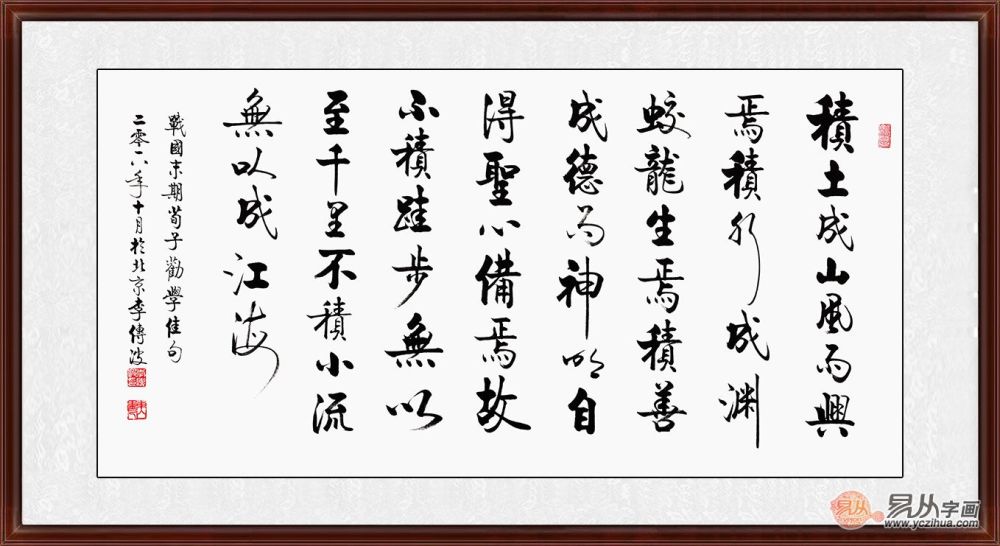 積土成山風雨興
焉積水成渊
蛟龍生焉積善
成德而神明自
得聖心備焉故
不積跬步無以
至千里不積小流
無以成江海
戰國末期荀子勸學佳句
二零一八年十月於北京李傳波
易从
易从字画
www.yczihua.com